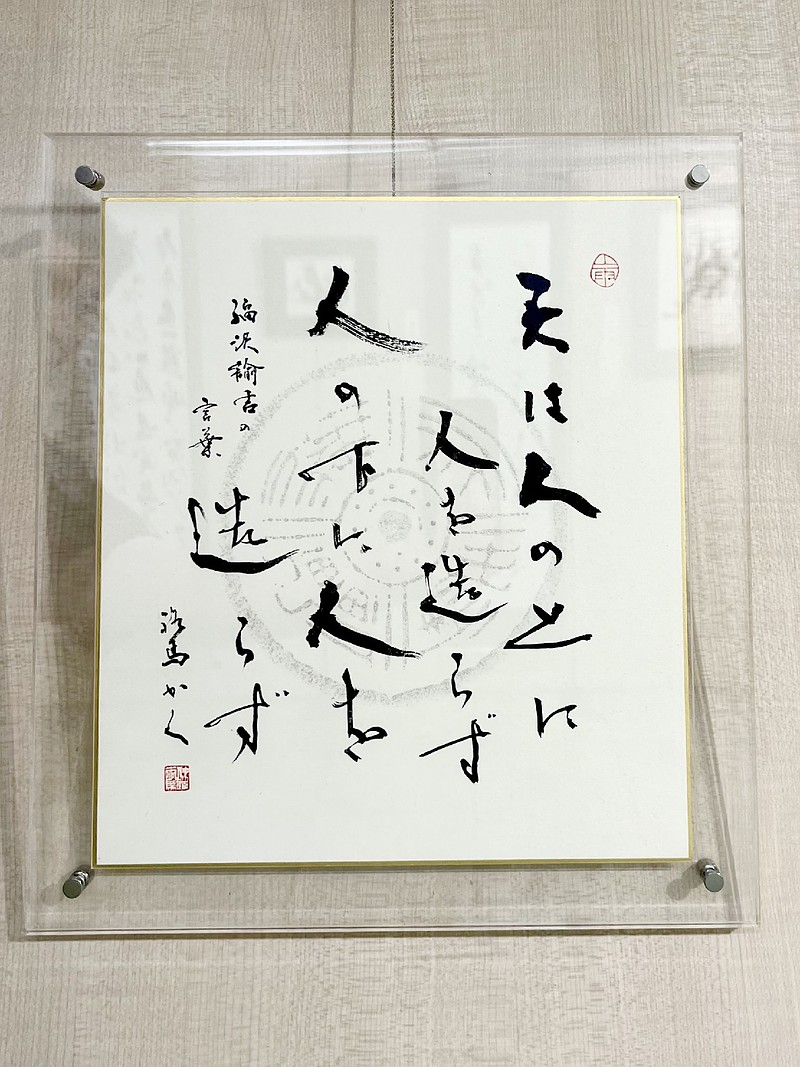 天は人の上に
人を造らず
人の下に人を
造らず
福沢諭吉の
言葉
かく